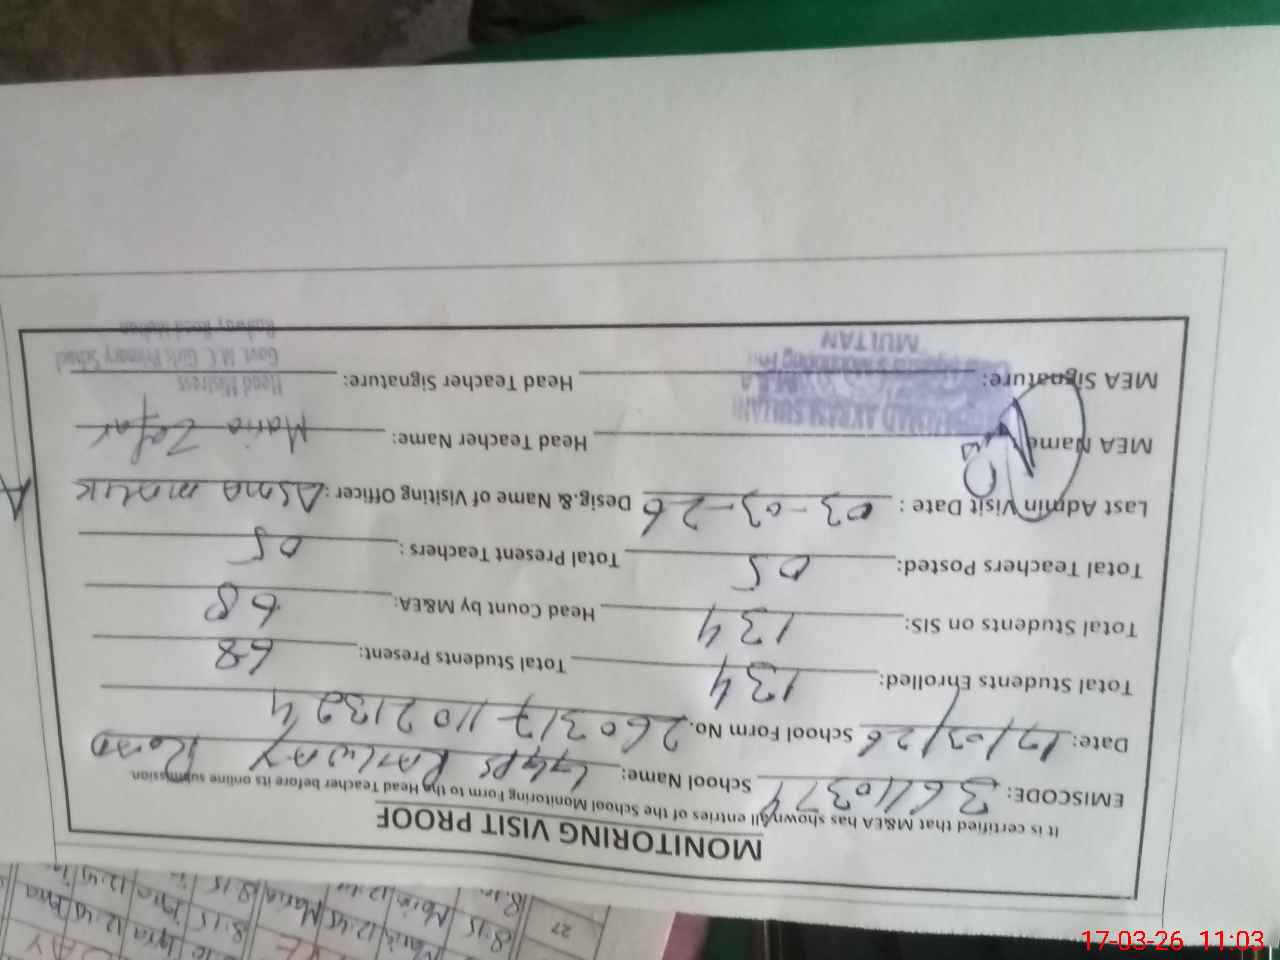 MONITORING VISIT PROOF
It is certified that M&EA has shown All entries of the School Monitoring Form to the Head Teacher before its online submission.
EMISCODE: 36110374 School Name: GGPS RAILWAY ROAD
Date: 17/03/26 School Form No. 260317 1102132 4
Total Students Enrolled: 134 Total Students Present: 68
Total Students on SIS: 134 Head Count by M&EA: 68
Total Teachers Posted: 05 Total Present Teachers: 05
Last Admin Visit Date: 03-03-26 Desig.& Name of Visiting Officer: Asma malik
MEA Name: Head Teacher Name: Maria Zafar
MEA Signature: Head Teacher Signature:
MULTAN
Head Mistress
Govt. M.C. Girls Primary School
Railway Road Multan
27
17-03-26 11:03